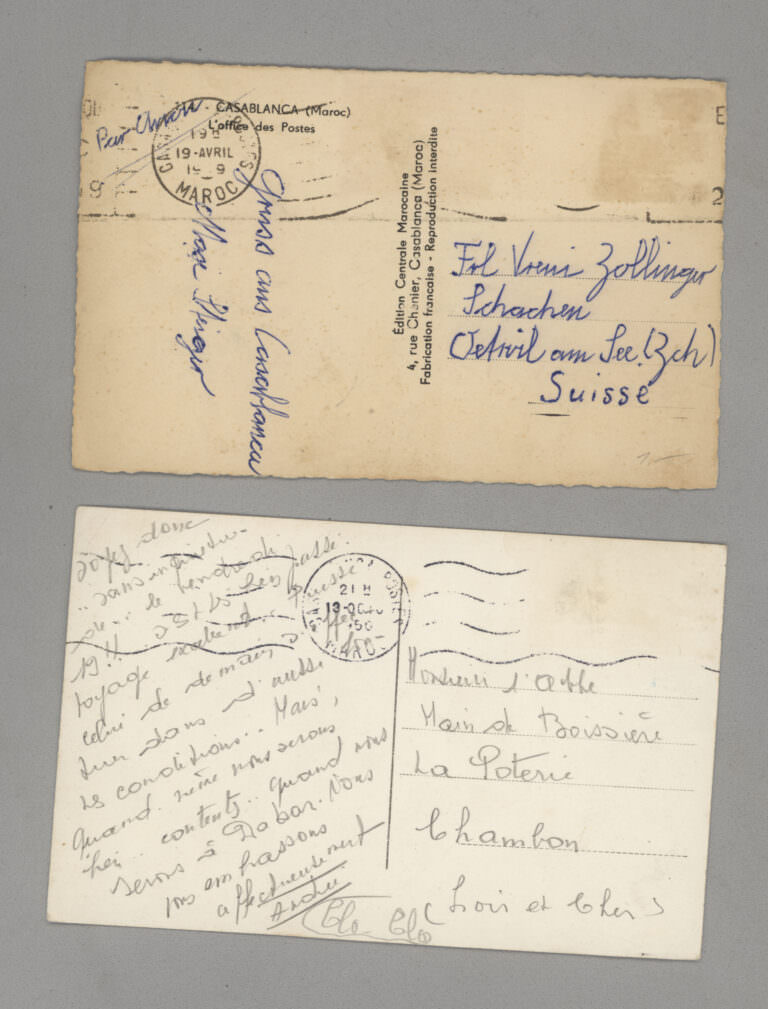 CASABLANCA (Maroc)
L'office des Postes
Par Avion
19 H
19-AVRIL
MAROC
E
2
9
Gruss aus Casablanca
Max
Édition Centrale Marocaine
4, rue Chenier, Casablanca (Maroc)
Fabrication française - Reproduction interdite
Frl Vreni Zollinger
Schachen
Oetwil am See (Zch)
Suisse
Soyez donc
sans inquiétu-
de.. le vendredi
19H
passé
voyage excellent.. Puisse
celui de demain, s'effec-
tuer dans d'aussi
conditions.. Mais,
quand même nous serons
bien contents.. quand nous
serons à Dakar. Nous
vous embrassons
affectueusement
Clo Clo
21 H
MAROC
Monsieur l'Abbé
Main de Boissière
La Poterie
Chambon
(Loir et Cher)